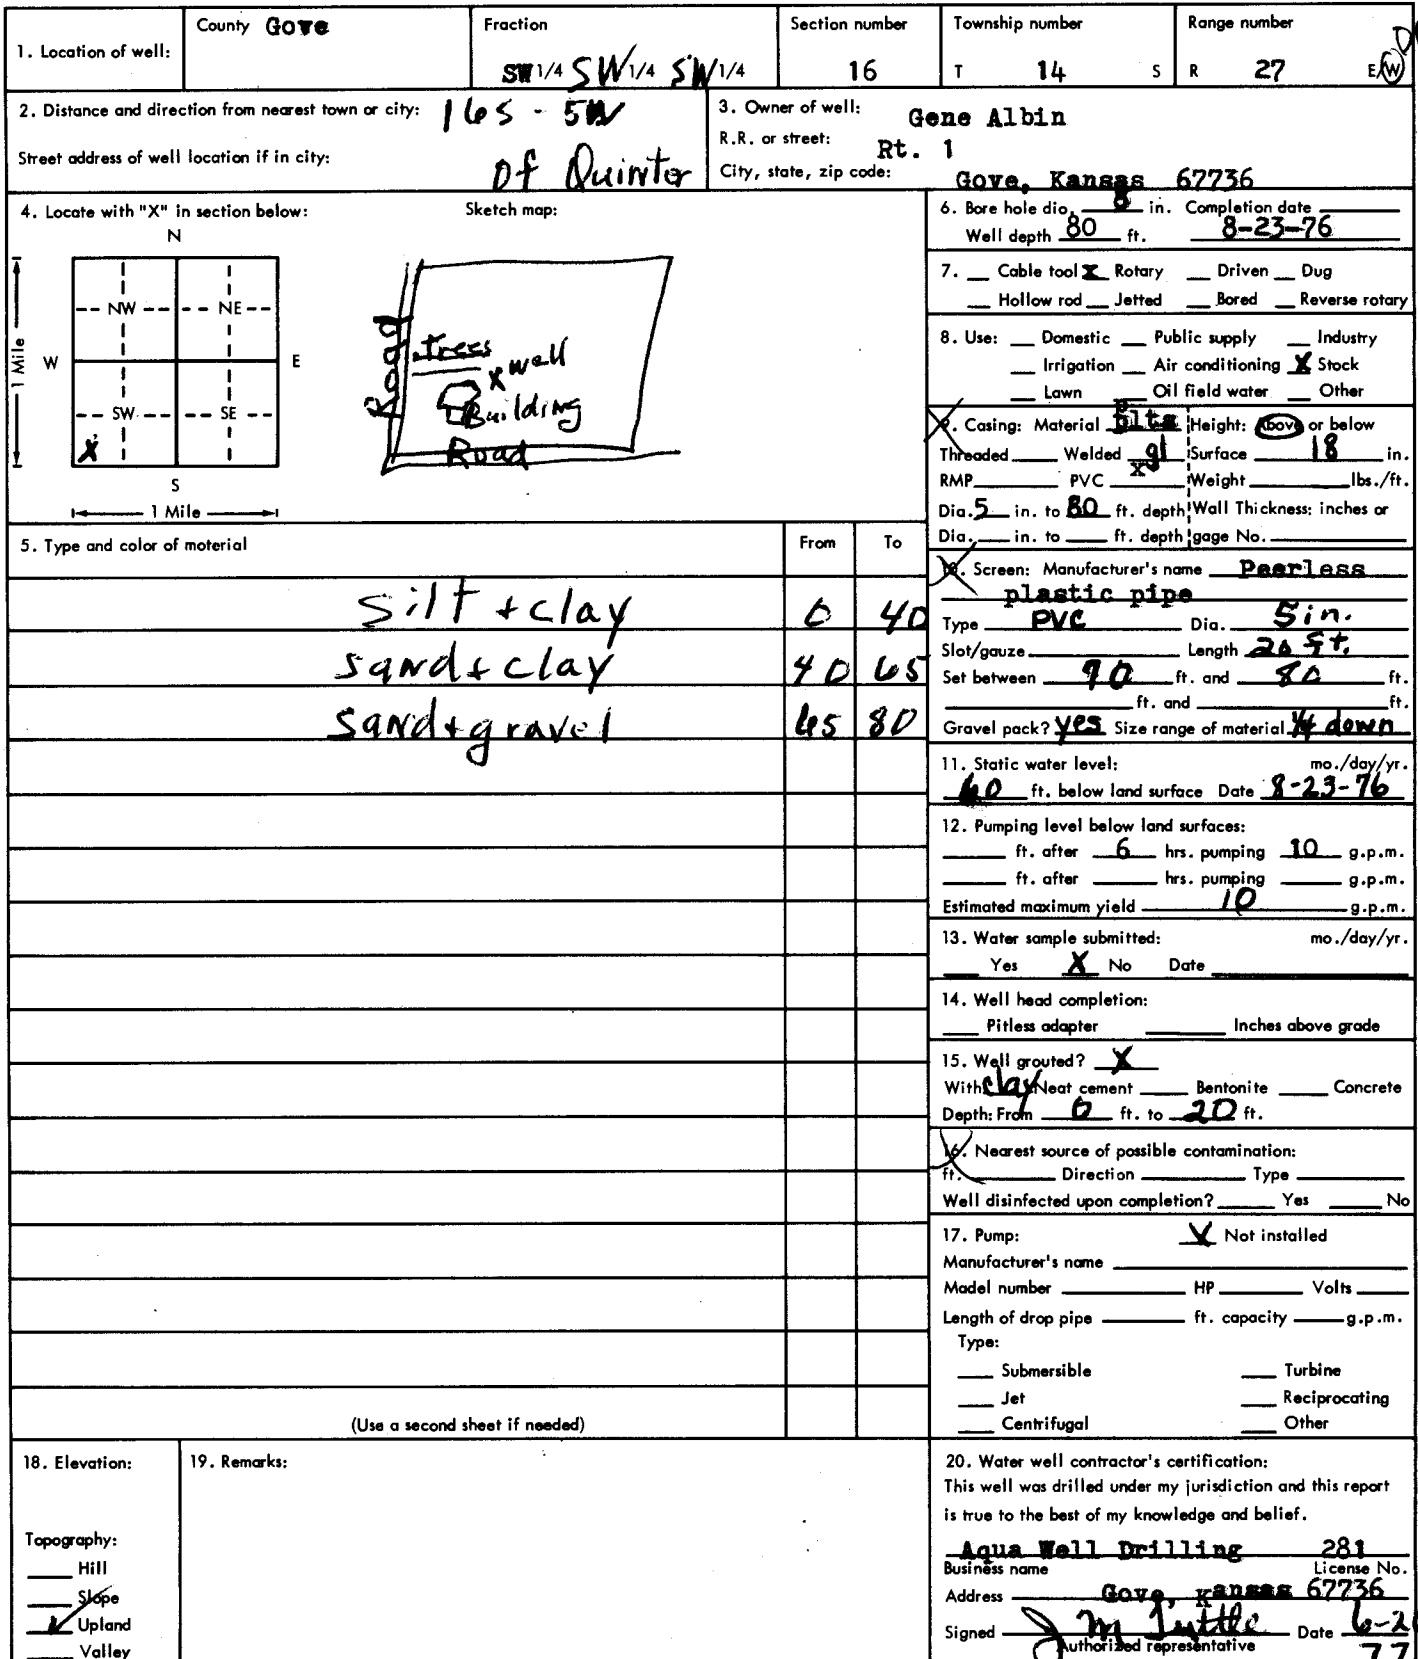 1. Location of well: County Gove Fraction SW 1/4 SW 1/4 SW 1/4 Section number 16 Township number T 14 S Range number R 27 E/W
2. Distance and direction from nearest town or city: 16S - 5W of Quinter
Street address of well location if in city:
3. Owner of well: Gene Albin
R.R. or street: Rt. 1
City, state, zip code: Gove, Kansas 67736
4. Locate with "X" in section below:
N
NW NE
W E
SW SE
X
S
1 Mile
1 Mile
Sketch map:
Road
trees
x well
Building
Road
5. Type and color of material From To
silt + clay 0 40
sand + clay 40 65
sand + gravel 65 80
(Use a second sheet if needed)
6. Bore hole dia. 8 in. Completion date
Well depth 80 ft. 8-23-76
7. Cable tool X Rotary Driven Dug
Hollow rod Jetted Bored Reverse rotary
8. Use: Domestic Public supply Industry
Irrigation Air conditioning X Stock
Lawn Oil field water Other
9. Casing: Material Height: Above or below
Threaded Welded gl Surface 18 in.
RMP PVC x Weight lbs./ft.
Dia. 5 in. to 80 ft. depth Wall Thickness: inches or
Dia. in. to ft. depth gage No.
10. Screen: Manufacturer's name Peerless
plastic pipe
Type PVC Dia. 5 in.
Slot/gauze Length 20 ft.
Set between ft. and 80 ft.
ft. and ft.
Gravel pack? yes Size range of material 1/4 down
11. Static water level: mo./day/yr.
60 ft. below land surface Date 8-23-76
12. Pumping level below land surfaces:
ft. after 6 hrs. pumping 10 g.p.m.
ft. after hrs. pumping g.p.m.
Estimated maximum yield 10 g.p.m.
13. Water sample submitted: mo./day/yr.
Yes X No Date
14. Well head completion:
Pitless adapter Inches above grade
15. Well grouted? X
With: clay Neat cement Bentonite Concrete
Depth: From 0 ft. to 20 ft.
16. Nearest source of possible contamination:
ft. Direction Type
Well disinfected upon completion? Yes No
17. Pump: X Not installed
Manufacturer's name
Model number HP Volts
Length of drop pipe ft. capacity g.p.m.
Type:
Submersible Turbine
Jet Reciprocating
Centrifugal Other
18. Elevation:
Topography:
Hill
Slope
Upland
Valley
19. Remarks:
20. Water well contractor's certification:
This well was drilled under my jurisdiction and this report
is true to the best of my knowledge and belief.
Aqua Well Drilling 281
Business name License No.
Address Gove, Kansas 67736
Signed M Tuttle Date 6-2
Authorized representative 77